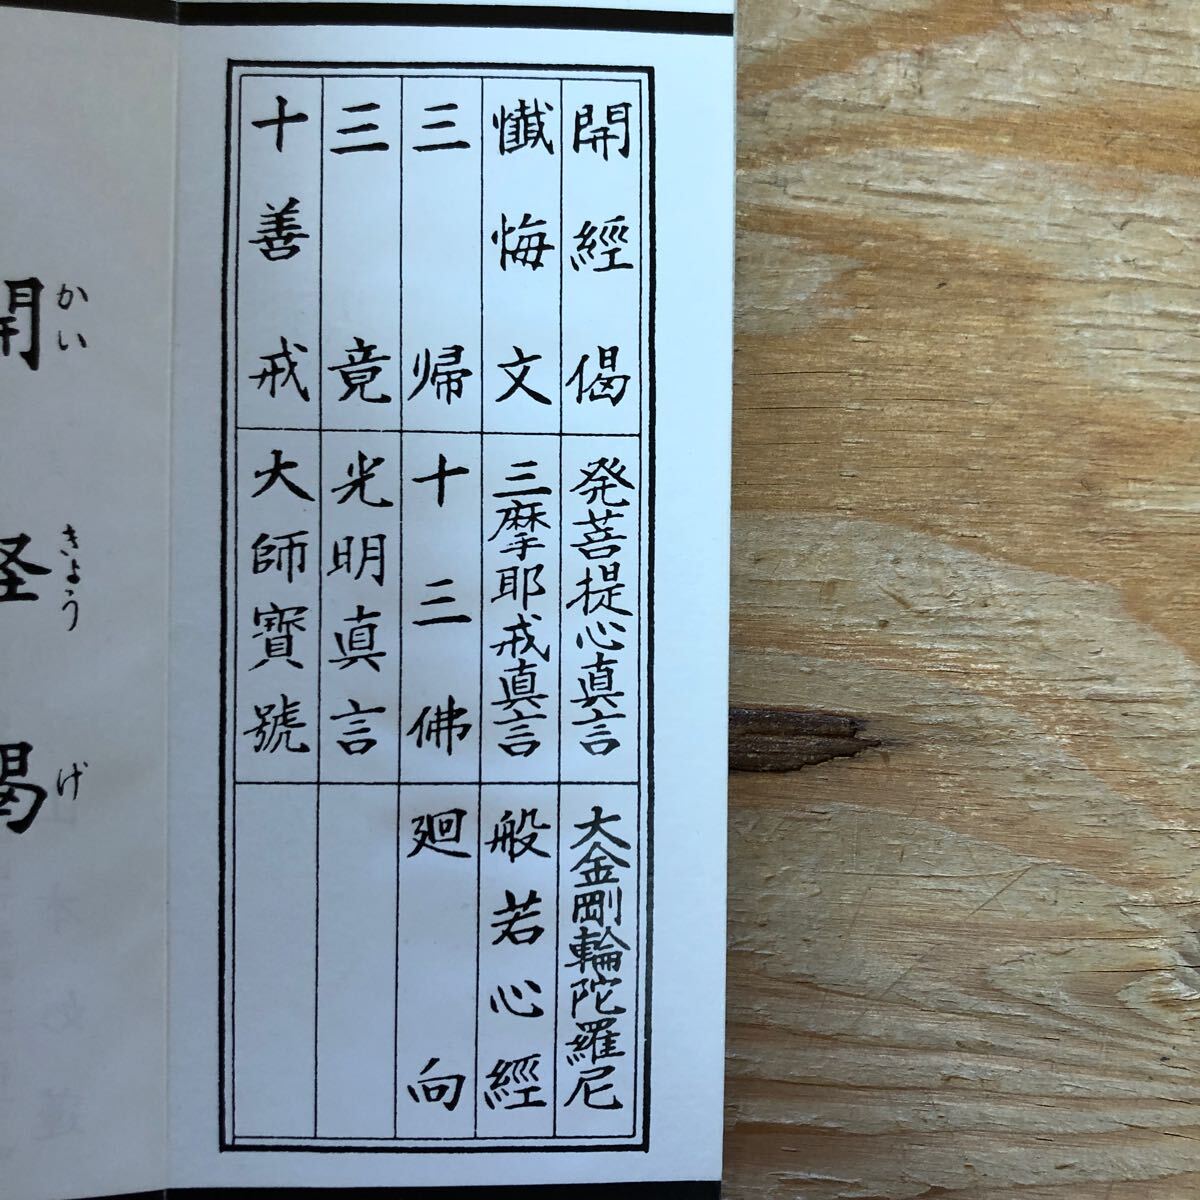 開經偈
懺悔文
三帰
三竟
十善戒
発菩提心真言
三摩耶戒真言
十三佛
光明真言
大師寳號
大金剛輪陀羅尼
般若心經
廻向
開経偈
かいきょうげ